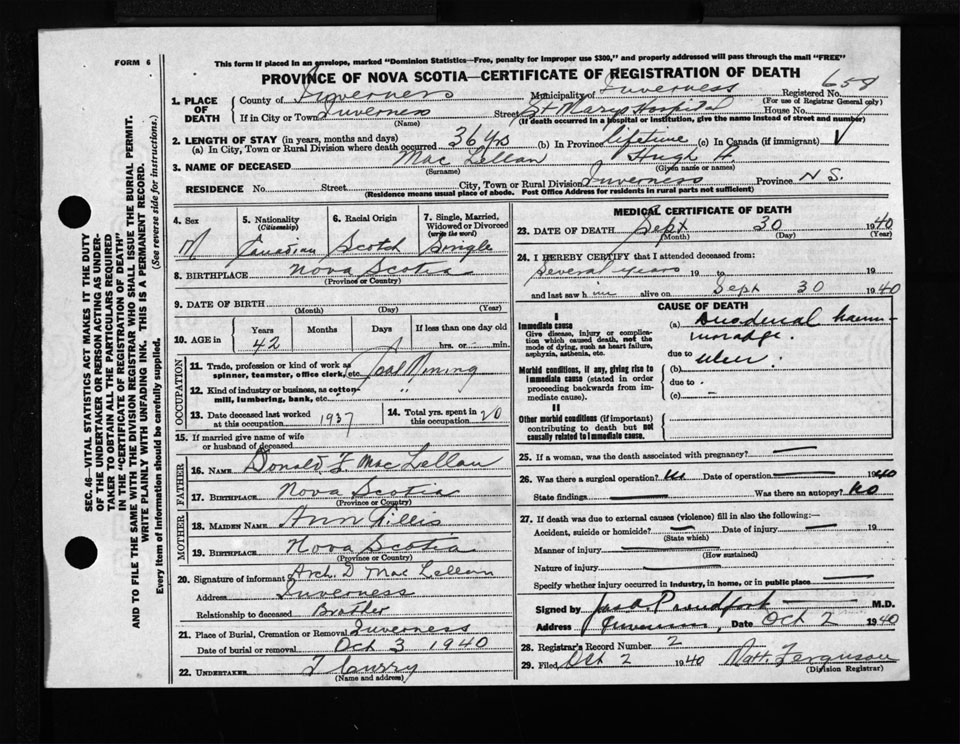 FORM 6
This form if placed in an envelope, marked "Dominion Statistics—Free, penalty for improper use $300," and properly addressed will pass through the mail "FREE"
PROVINCE OF NOVA SCOTIA—CERTIFICATE OF REGISTRATION OF DEATH
SEC. 46—VITAL STATISTICS ACT MAKES IT THE DUTY
OF THE UNDERTAKER OR PERSON ACTING AS UNDER-
TAKER TO OBTAIN ALL THE PARTICULARS REQUIRED
IN THE "CERTIFICATE OF REGISTRATION OF DEATH"
AND TO FILE THE SAME WITH THE DIVISION REGISTRAR WHO SHALL ISSUE THE BURIAL PERMIT.
WRITE PLAINLY WITH UNFADING INK. THIS IS A PERMANENT RECORD.
Every item of Information should be carefully supplied. (See reverse side for instructions.)
1. PLACE OF DEATH County of Inverness Municipality of Inverness Registered No. 658
(For use of Registrar General only)
If in City or Town Inverness Street St Marys Hospital House No.
(Name) (If death occurred in a hospital or institution, give the name instead of street and number)
2. LENGTH OF STAY (in years, months and days)
(a) In City, Town or Rural Division where death occurred 36 yrs (b) In Province lifetime (c) In Canada (if immigrant) ✓
3. NAME OF DECEASED Mac Lellan Hugh A.
(Surname) (Given name or names)
RESIDENCE No. Street City, Town or Rural Division Inverness Province N S.
(Residence means usual place of abode. Post Office Address for residents in rural parts not sufficient)
4. Sex M
5. Nationality (Citizenship) Canadian
6. Racial Origin Scotch
7. Single, Married, Widowed or Divorced (write the word) Single
8. BIRTHPLACE Nova Scotia
(Province or Country)
9. DATE OF BIRTH
(Month) (Day) (Year)
10. AGE in Years Months Days If less than one day old
42 hrs. or min.
OCCUPATION
11. Trade, profession or kind of work as spinner, teamster, office clerk, etc. Coal Mining
12. Kind of industry or business, as cotton-mill, lumbering, bank, etc. "
13. Date deceased last worked at this occupation 1937
14. Total yrs. spent in this occupation 20
15. If married give name of wife or husband of deceased
FATHER
16. NAME Donald F. Mac Lellan
17. BIRTHPLACE Nova Scotia
(Province or Country)
MOTHER
18. MAIDEN NAME Ann Gillis
19. BIRTHPLACE Nova Scotia
(Province or Country)
20. Signature of informant Arch. D Mac Lellan
Address Inverness
Relationship to deceased Brother
21. Place of Burial, Cremation or Removal Inverness
Date of burial or removal Oct 3 1940
22. UNDERTAKER J Curry
(Name and address)
MEDICAL CERTIFICATE OF DEATH
23. DATE OF DEATH Sept 30 1940
(Month) (Day) (Year)
24. I HEREBY CERTIFY that I attended deceased from:
Several years 19 to 19
and last saw him alive on Sept 30 1940
CAUSE OF DEATH
I
Immediate cause
Give disease, injury or complication which caused death, not the mode of dying, such as heart failure, asphyxia, asthenia, etc.
(a) Duodenal haem-
moradge.
due to ulcer.
Morbid conditions, if any, giving rise to immediate cause (stated in order proceeding backwards from immediate cause).
(b)
due to
(c)
II
Other morbid conditions (if important) contributing to death but not causally related to immediate cause.
25. If a woman, was the death associated with pregnancy? —
26. Was there a surgical operation? No Date of operation — 1940
State findings — Was there an autopsy? No
27. If death was due to external causes (violence) fill in also the following:—
Accident, suicide or homicide? — Date of injury — 19
(State which)
Manner of injury —
(How sustained)
Nature of injury —
Specify whether injury occurred in industry, in home, or in public place —
Signed by Jas A Proudfoot M.D.
Address Inverness, Date Oct 2 1940
28. Registrar's Record Number 2
29. Filed Oct 2 1940 Matt. Ferguson
(Division Registrar)